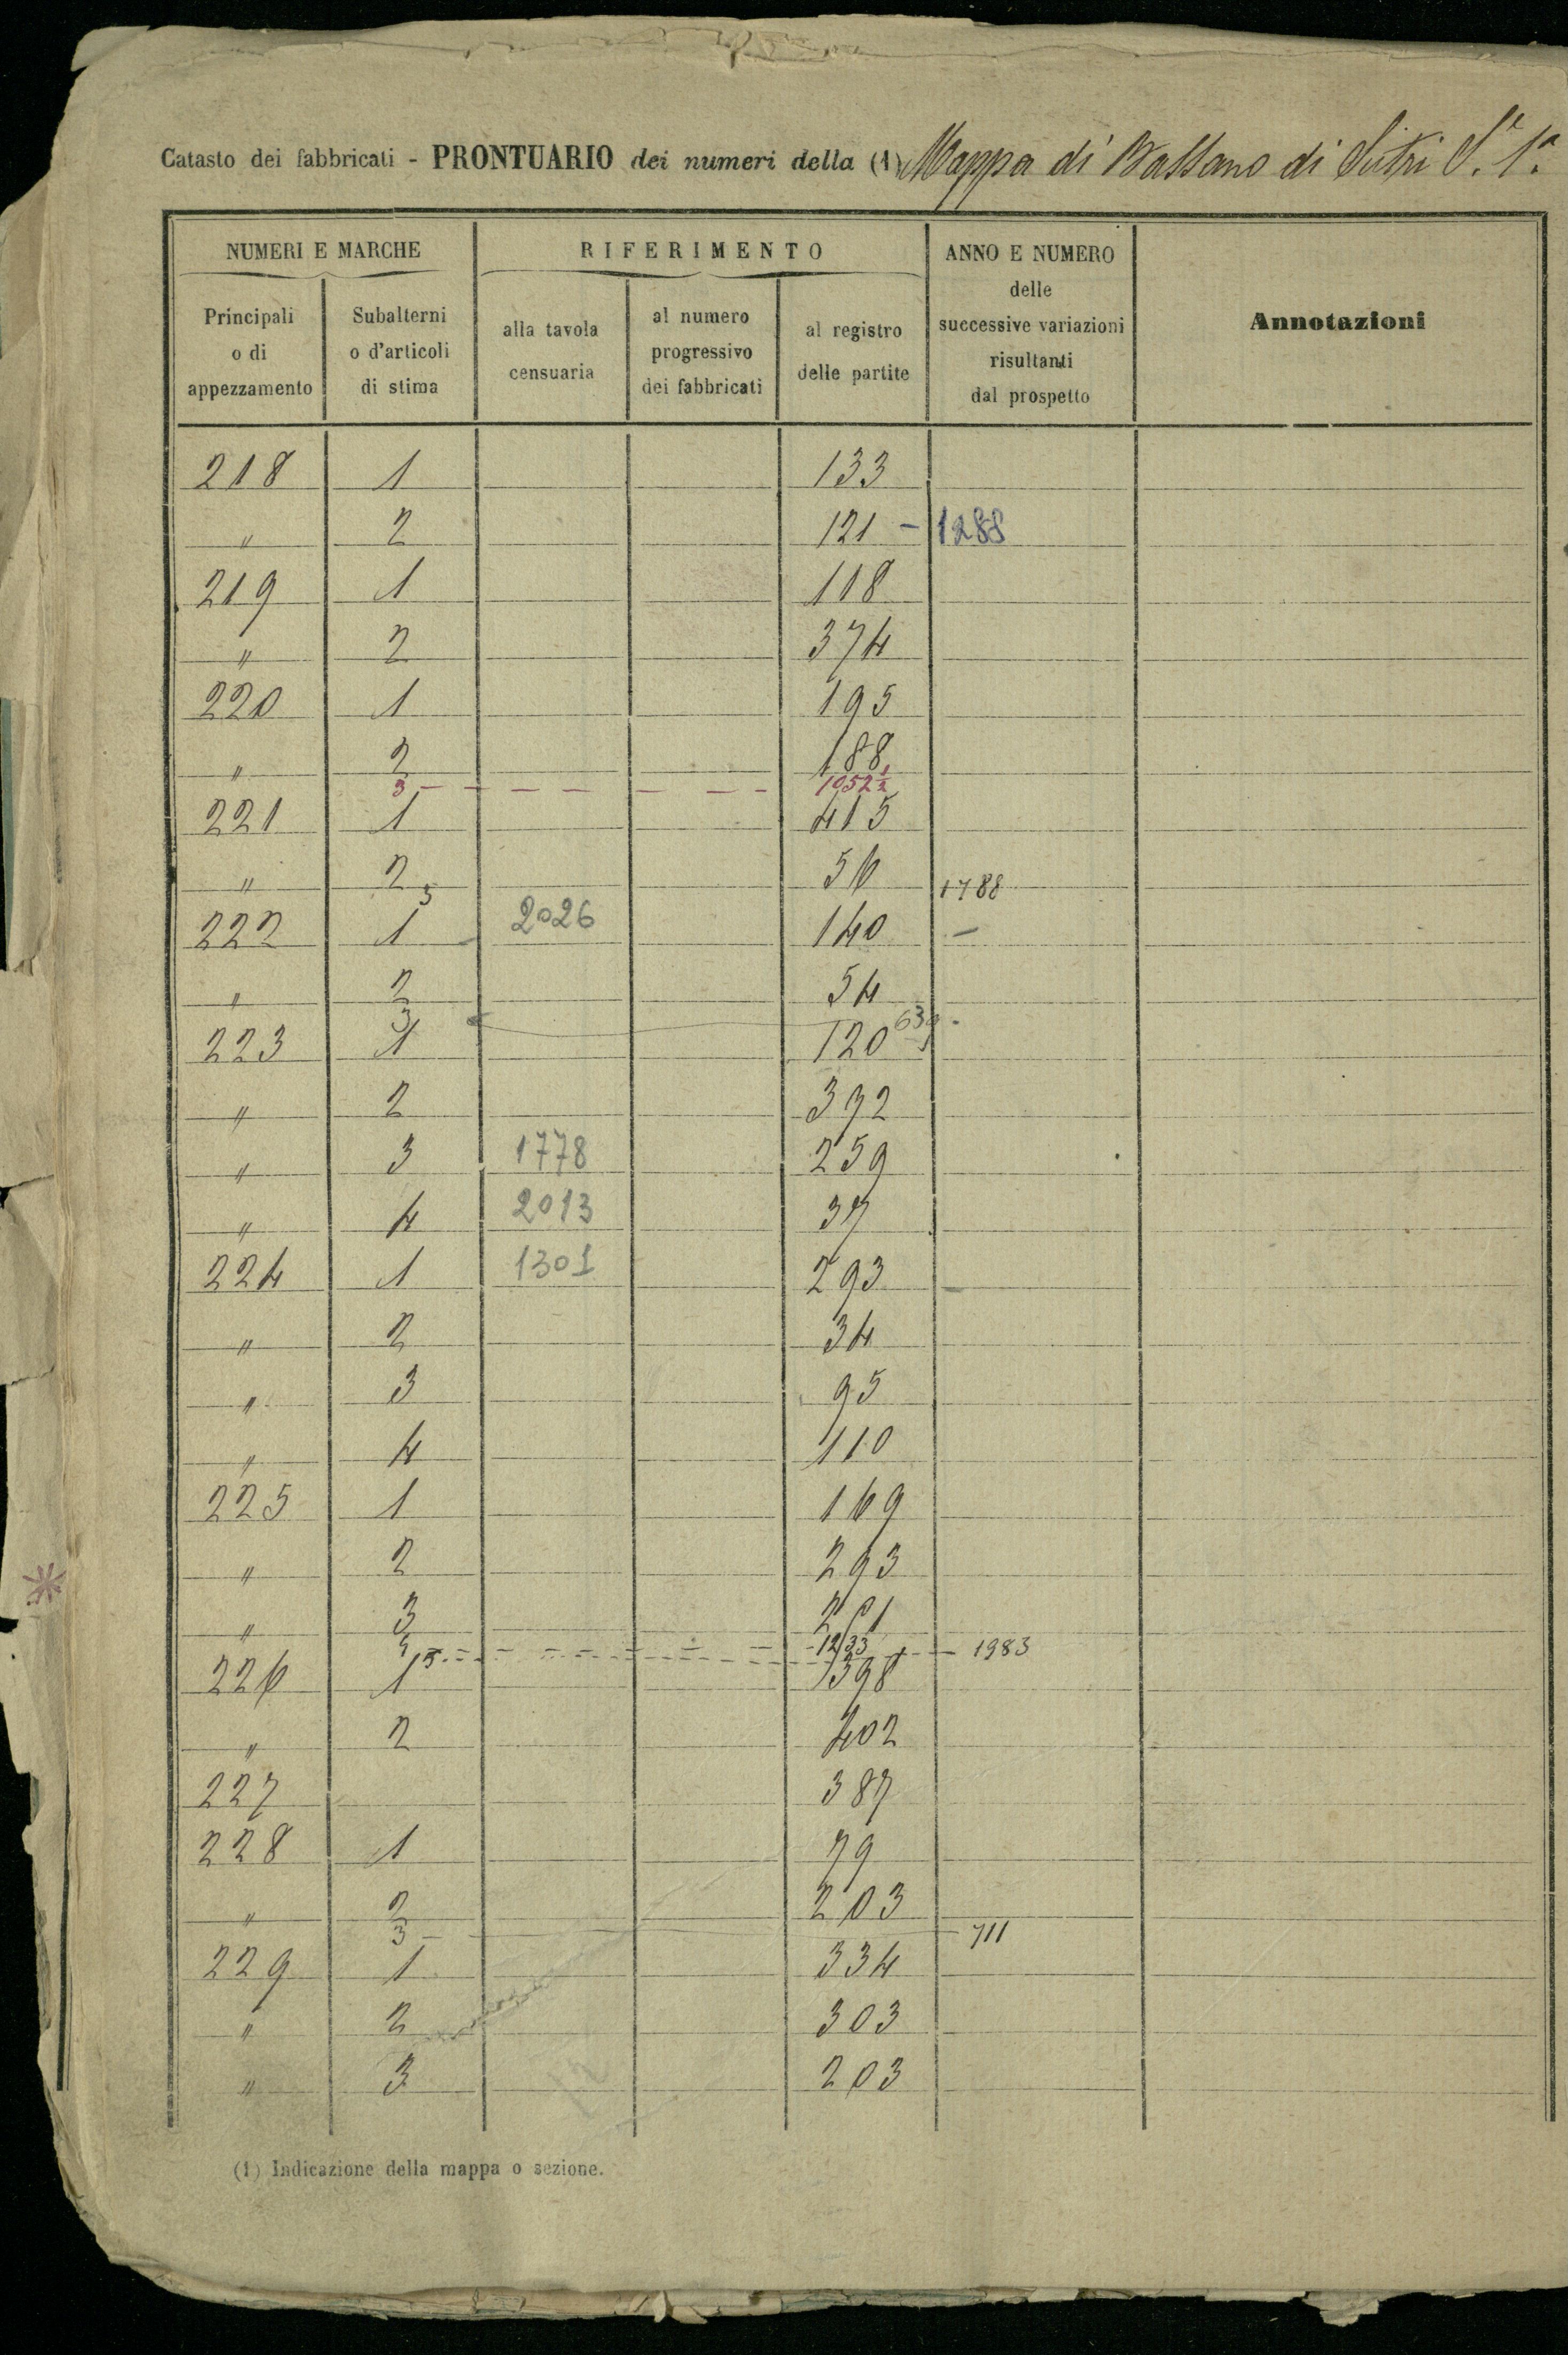 Catasto dei fabbricati - PRONTUARIO dei numeri della (1) Mappa di Bassano di Sutri S.ᵉ 1ª
NUMERI E MARCHE RIFERIMENTO ANNO E NUMERO delle successive variazioni risultanti dal prospetto Annotazioni
Principali o di appezzamento Subalterni o d'articoli di stima alla tavola censuaria al numero progressivo dei fabbricati al registro delle partite
218 1 133
" 2 121 - 1288
219 1 118
" 2 374
220 1 195
" 2 188
3 - - - - - - - 1952 1/2
221 1 415
" 2 56
3 1788
222 1 2026 140 -
" 2 54
3 639
223 1 120
" 2 392
" 3 1778 259
" 4 2013 37
224 1 1301 293
" 2 34
" 3 95
" 4 110
225 1 169
" 2 293
" 3 261
4 - - - - - 1233
5 - - - - - 1983
226 1 398
" 2 402
227 387
228 1 79
" 2 203
3 - 711
229 1 334
" 2 303
" 3 203
(1) Indicazione della mappa o sezione.